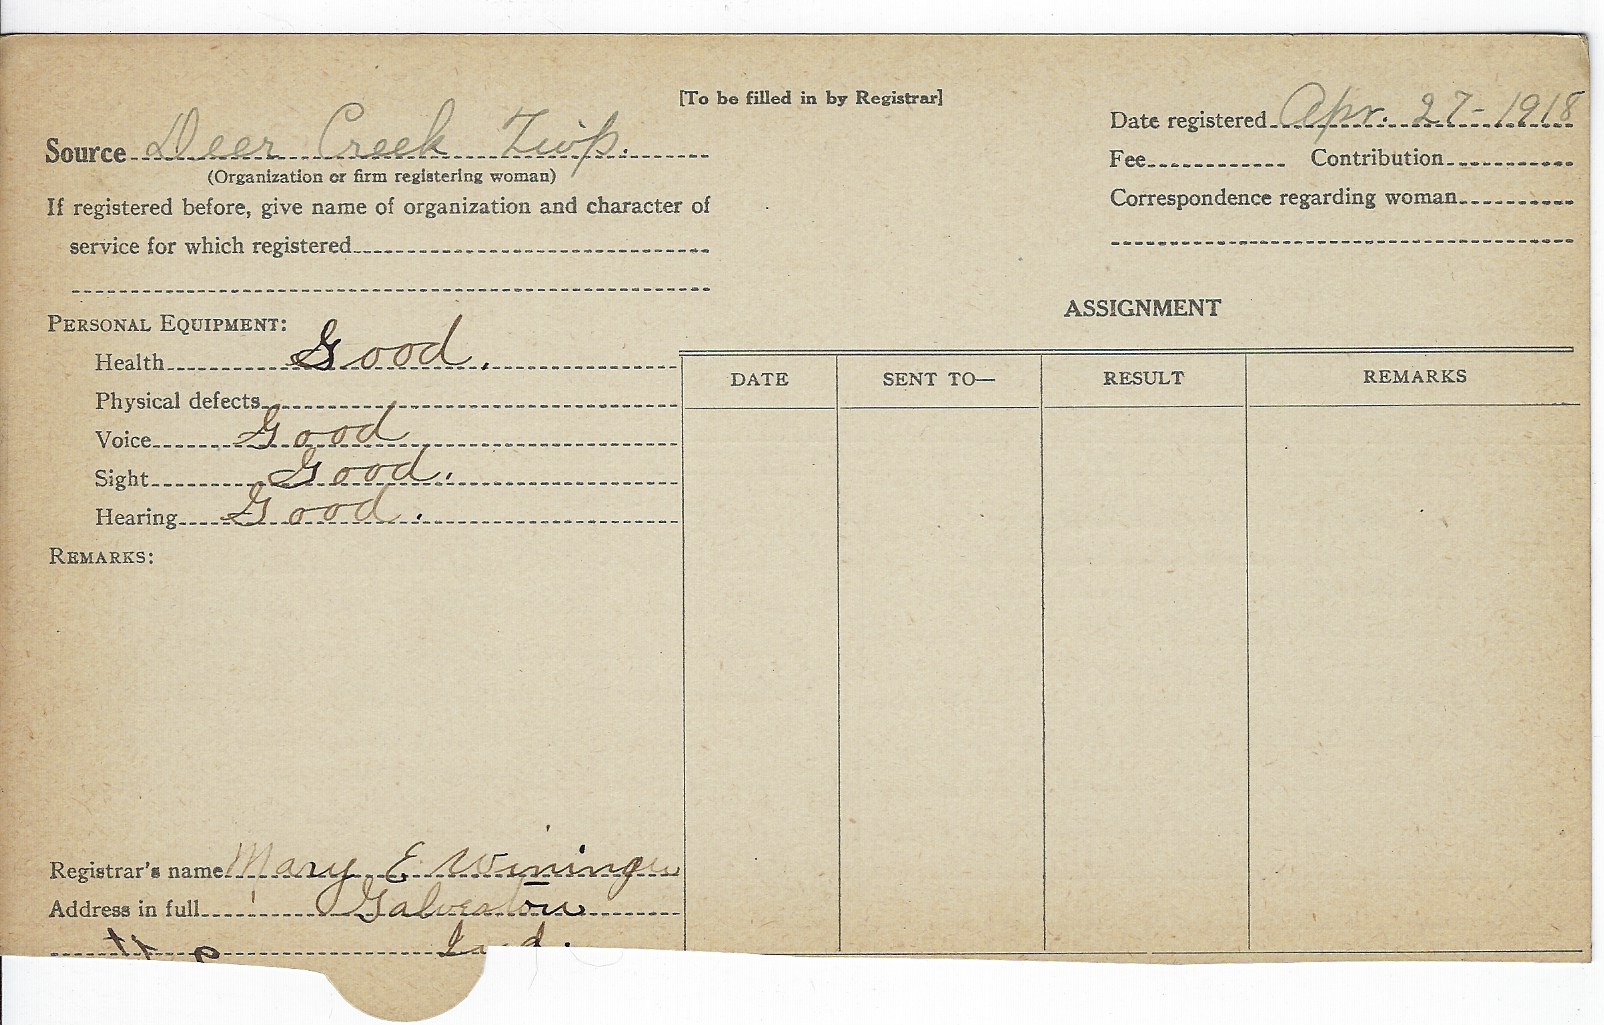 [To be filled in by Registrar]
Source Deer Creek Twp.
(Organization or firm registering woman)
If registered before, give name of organization and character of
service for which registered
Date registered Apr. 27-1918
Fee Contribution
Correspondence regarding woman
PERSONAL EQUIPMENT:
Health Good.
Physical defects
Voice Good
Sight Good.
Hearing Good.
REMARKS:
ASSIGNMENT
DATE SENT TO— RESULT REMARKS
Registrar's name Mary E Wininger
Address in full Galveston
Ind.